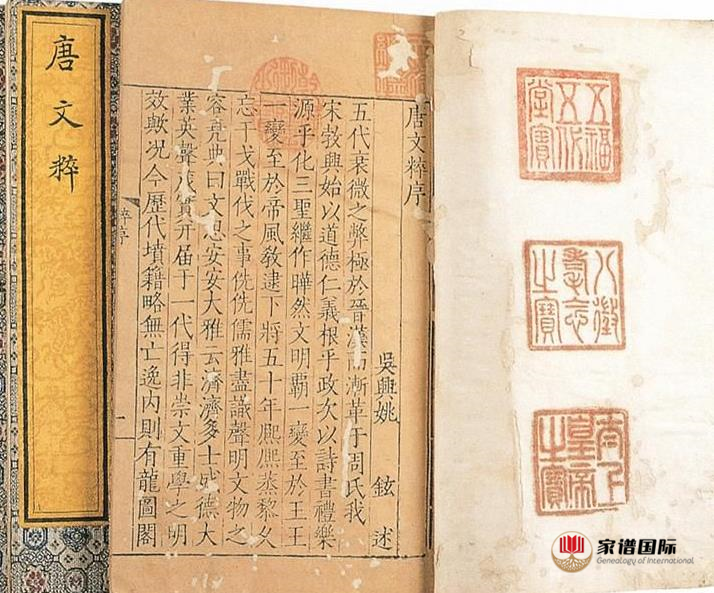 五福
五代
堂寶
八徵
耄念
之寶
太上
皇帝
之寶
唐文粹序
吳興姚 鉉 述
五代衰微之弊極於晉漢而漸革于周氏我
宋勃興始以道德仁義根乎政次以詩書禮樂
源乎化三聖繼作曄然文明霸一變至於王王
一變至於帝風教逮下將五十年熙熙蒸黎久
忘干戈戰伐之事侁侁儒雅盡識聲明文物之
容堯典曰文思安安大雅云濟濟多士盛德大
業英聲茂實并届于一代得非崇文重學之明
效歟况今歷代墳籍略無亡逸内則有龍圖閣
粹序
二
唐文粹
家谱国际
Genealogy of International